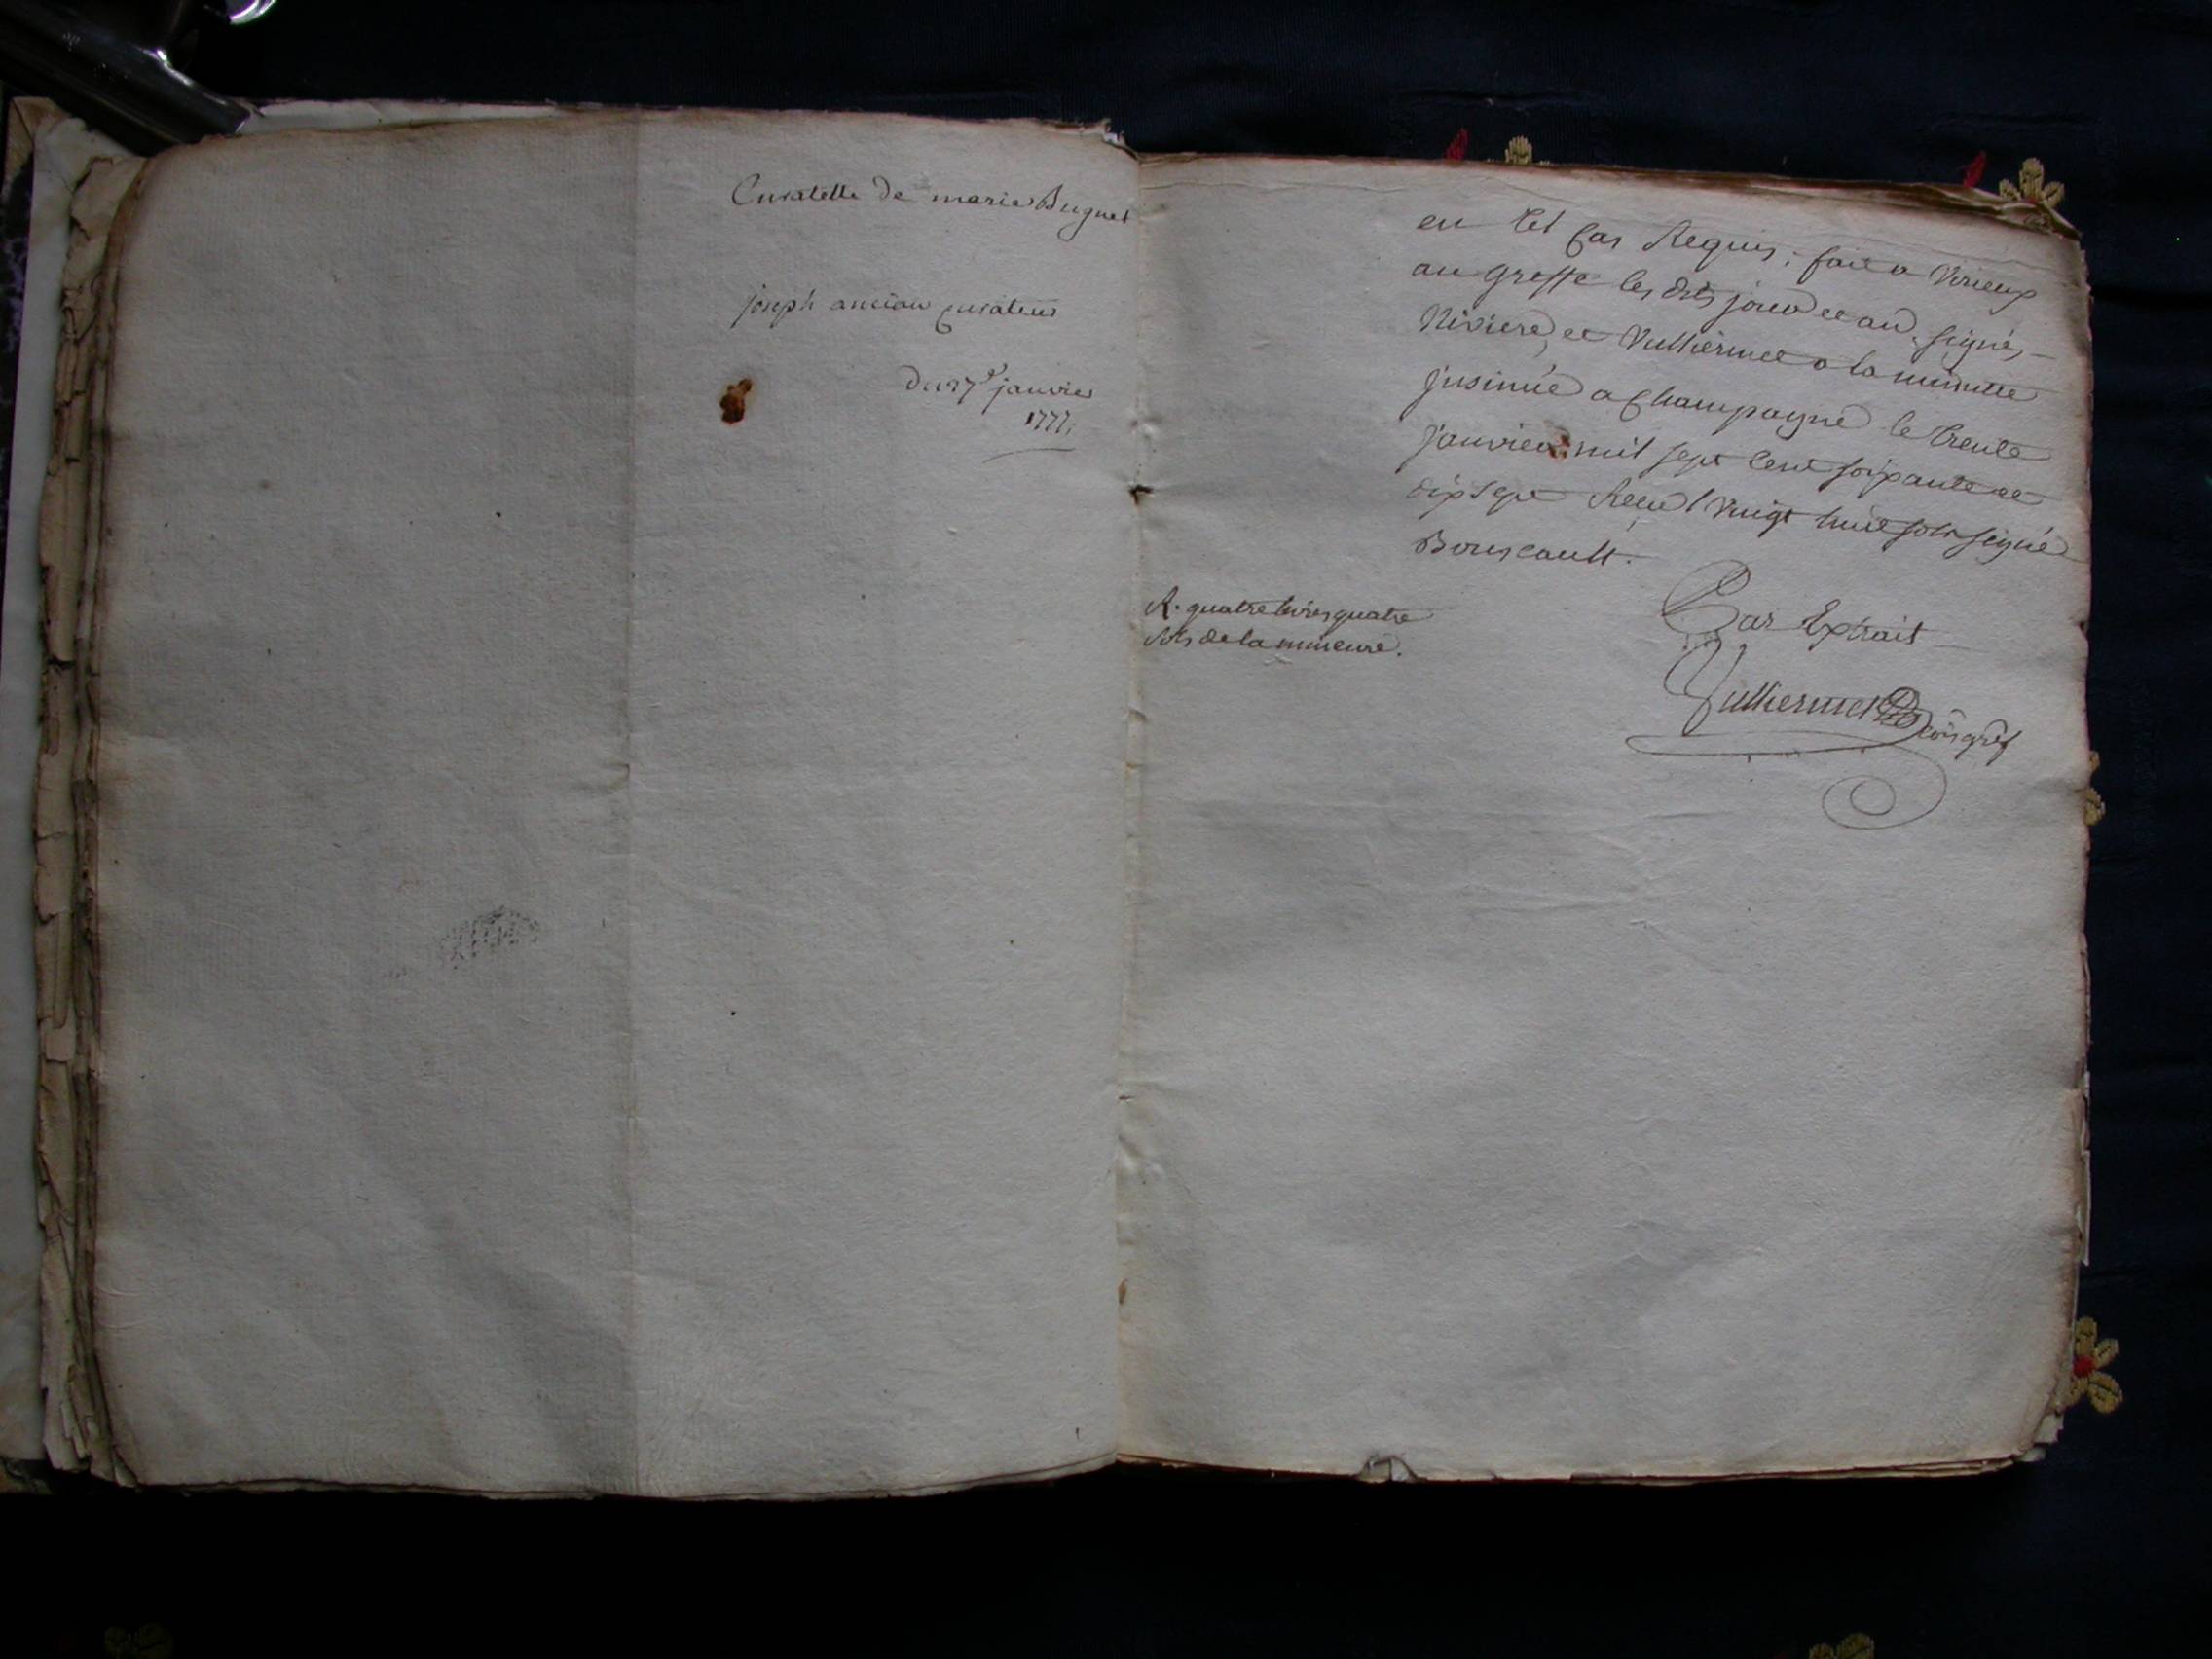 Curatelle de marie Buguet
joseph ancian curateur
du 27e janvier
1777.
en tel cas Requis ; fait a Virieux
au greffe les dits jour et an, signés
Riviere, et Vulliermet a la minutte
jnsinué a Champagne le trente
janvier mil sept cent soixante et
dix sept Recu vingt huit sols signé
Bouscault.
R. quatre livres quatre
sols de la mineure.
Par Extrait
Vulliermet